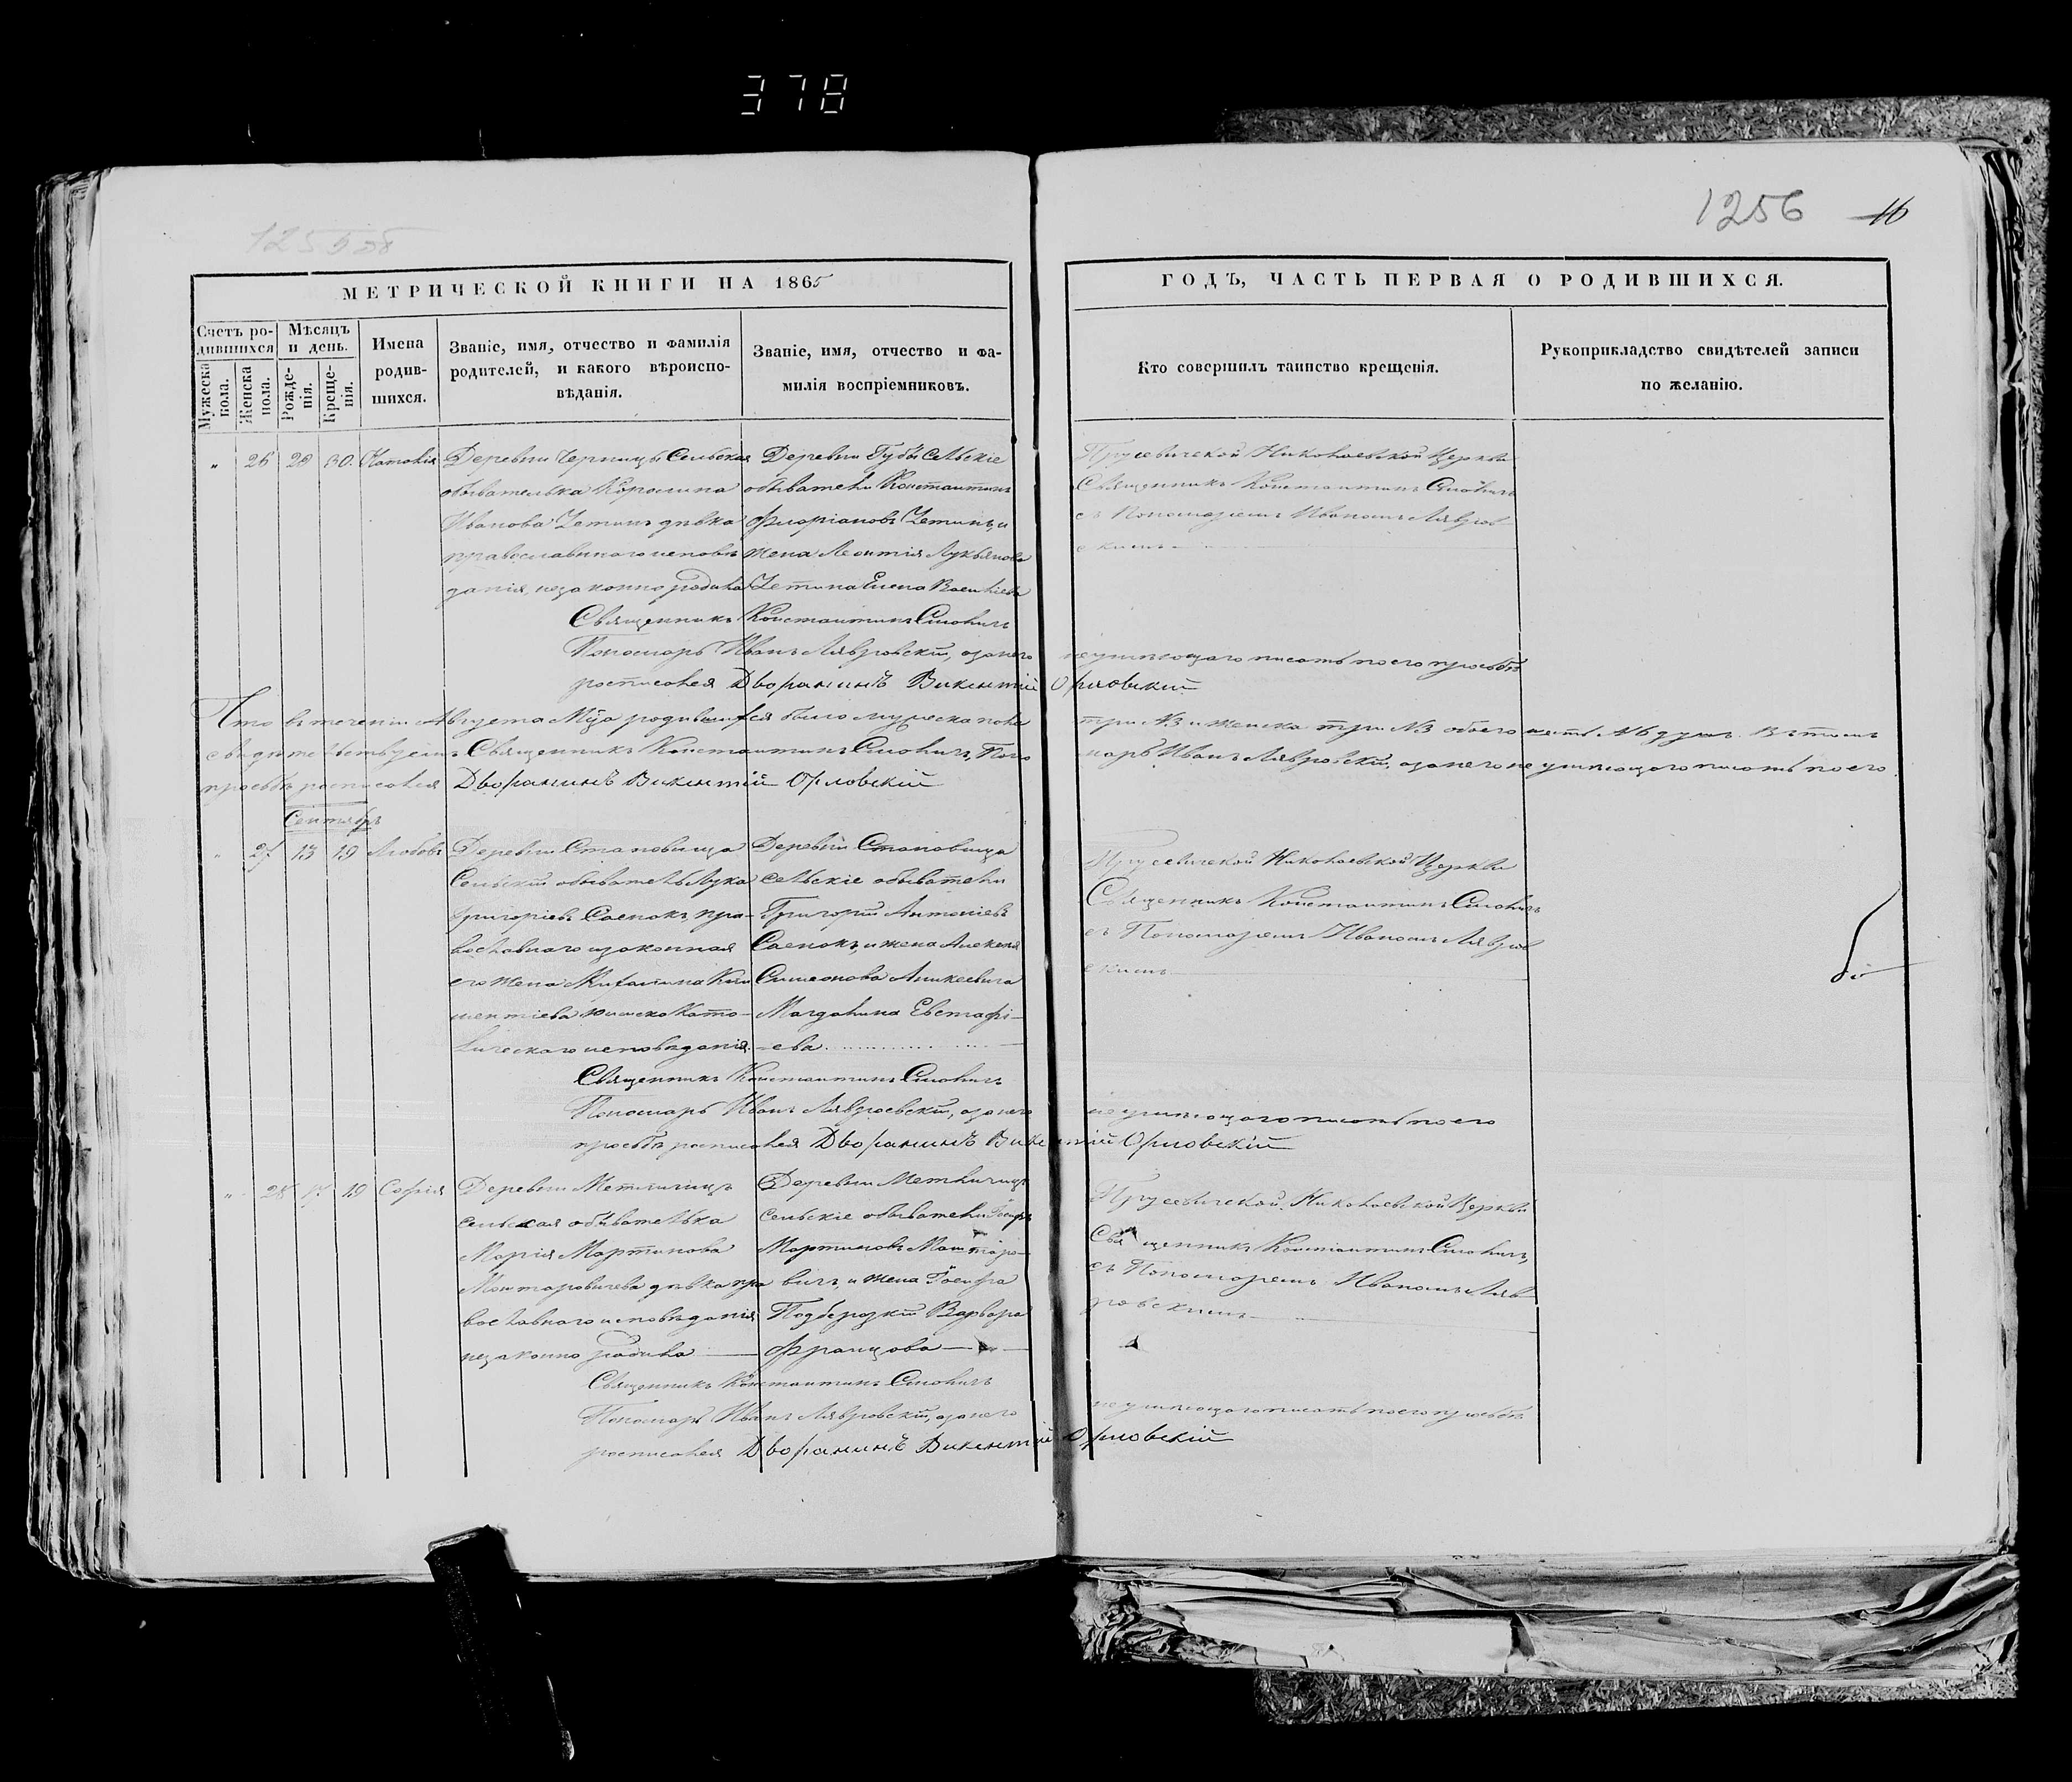 378
1255об
1256 16
МЕТРИЧЕСКОЙ КНИГИ НА 1865
ГОДЪ, ЧАСТЬ ПЕРВАЯ О РОДИВШИХСЯ.
Счетъ родившихся
Мужеска пола.
Женска пола.
Мѣсяцъ и день.
Рожденія.
Крещенія.
Имена родившихся.
Званіе, имя, отчество и фамилія родителей, и какого вѣроисповѣданія.
Званіе, имя, отчество и фамилія воспріемниковъ.
Кто совершилъ таинство крещенія.
Рукоприкладство свидѣтелей записи по желанію.
" 26 28 30. Наталія
Деревни Черницы Сельская
обывателька Каролина
Иванова Летинъ дѣвка
православнаго исповѣ
данія, незаконно родила
Деревни Губы Сельскіе
обыватели Константинъ
Флоріановъ Летинъ, и
жена Леонтія Лукьянова
Летина Елена Василіева
Николаевской Церкви
Священникъ Константинъ Смоличъ
съ Пономаремъ Иваномъ Лавров
скимъ
Священникъ Константинъ Смоличъ
Пономарь Иванъ Лавровскій, а за него неумѣющаго писать по его просьбѣ
росписался Дворянинъ Викентій Орловскій
Что въ теченіи Августа М-ца родившихся было мужеска пола три №3 и женска три №3 обоего
свидѣтельствуемъ Священникъ Константинъ Смоличъ, Поно марь Иванъ Лавровскій, а за него неумѣющаго писать по его
просьбѣ росписался Дворянинъ Викентій Орловскій
Сентябрь
" 27 13 19 Любовь
Деревни Становища
Сельскій обыватель Лука
Григоріевъ Саенокъ, пра-
вославнаго и законная
его жена
римско Като-
лическаго исповѣданія.
Деревни Становища
сельскіе обыватели
Григорій Антоніевъ
Саенокъ, и жена Алексѣя
Симеонова Аникеевича
Магдалина Евстафі-
ева
Николаевской Церкви
Священникъ Константинъ Смоличъ
съ Пономаремъ Иваномъ Лавров
скимъ
Священникъ Константинъ Смоличъ
Пономарь Иванъ Лавровскій, а за него неумѣющаго писать по его
просьбѣ росписался Дворянинъ Викентій Орловскій
" 28 17 19 Софія
Деревни Метличицъ
сельская обывателька
Марія Мартинова
дѣвка пра
вославнаго исповѣданія
незаконно родила
Деревни Метличицъ
сельскіе обыватели Іосифъ
Мартиновъ
вичъ, и жена Іосифа
Подберозкій Варвара
Францова
Николаевской Церкви
Священникъ Константинъ Смоличъ,
съ Пономаремъ Иваномъ Лав
ровскимъ
Священникъ Константинъ Смоличъ
Пономарь Иванъ Лавровскій, а за него неумѣющаго писать по его просьбѣ
росписался Дворянинъ Викентій Орловскій